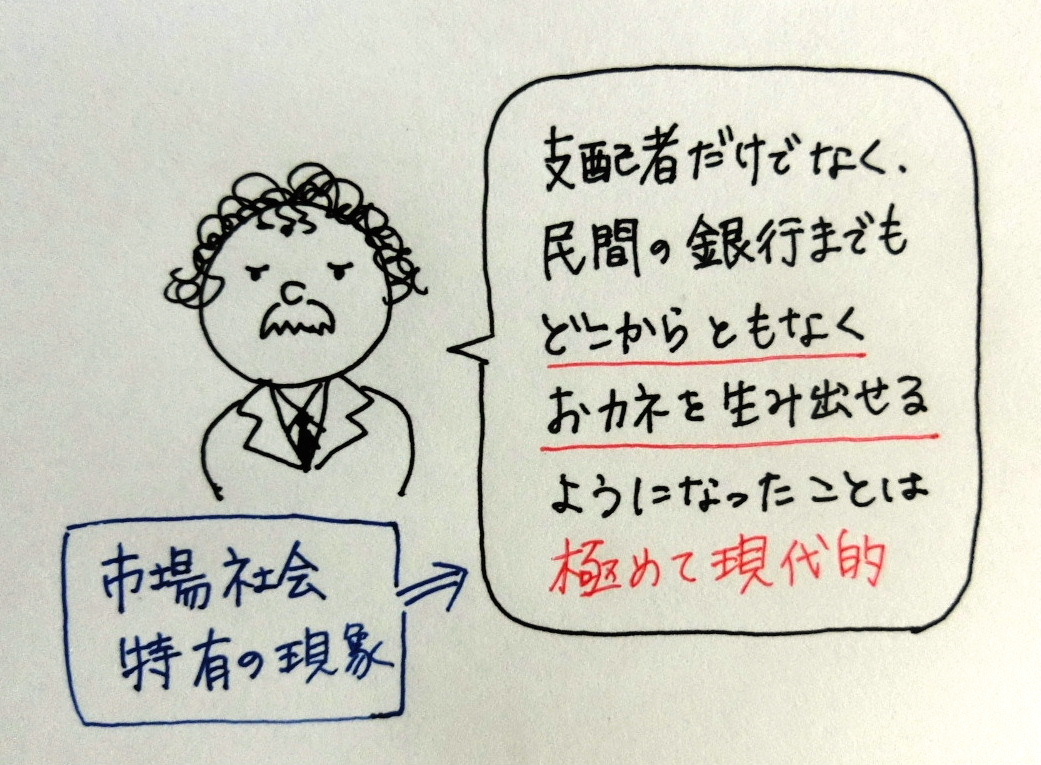 支配者だけでなく、
民間の銀行までも
どこからともなく
おカネを生み出せる
ようになったことは
極めて現代的
市場社会
特有の現象